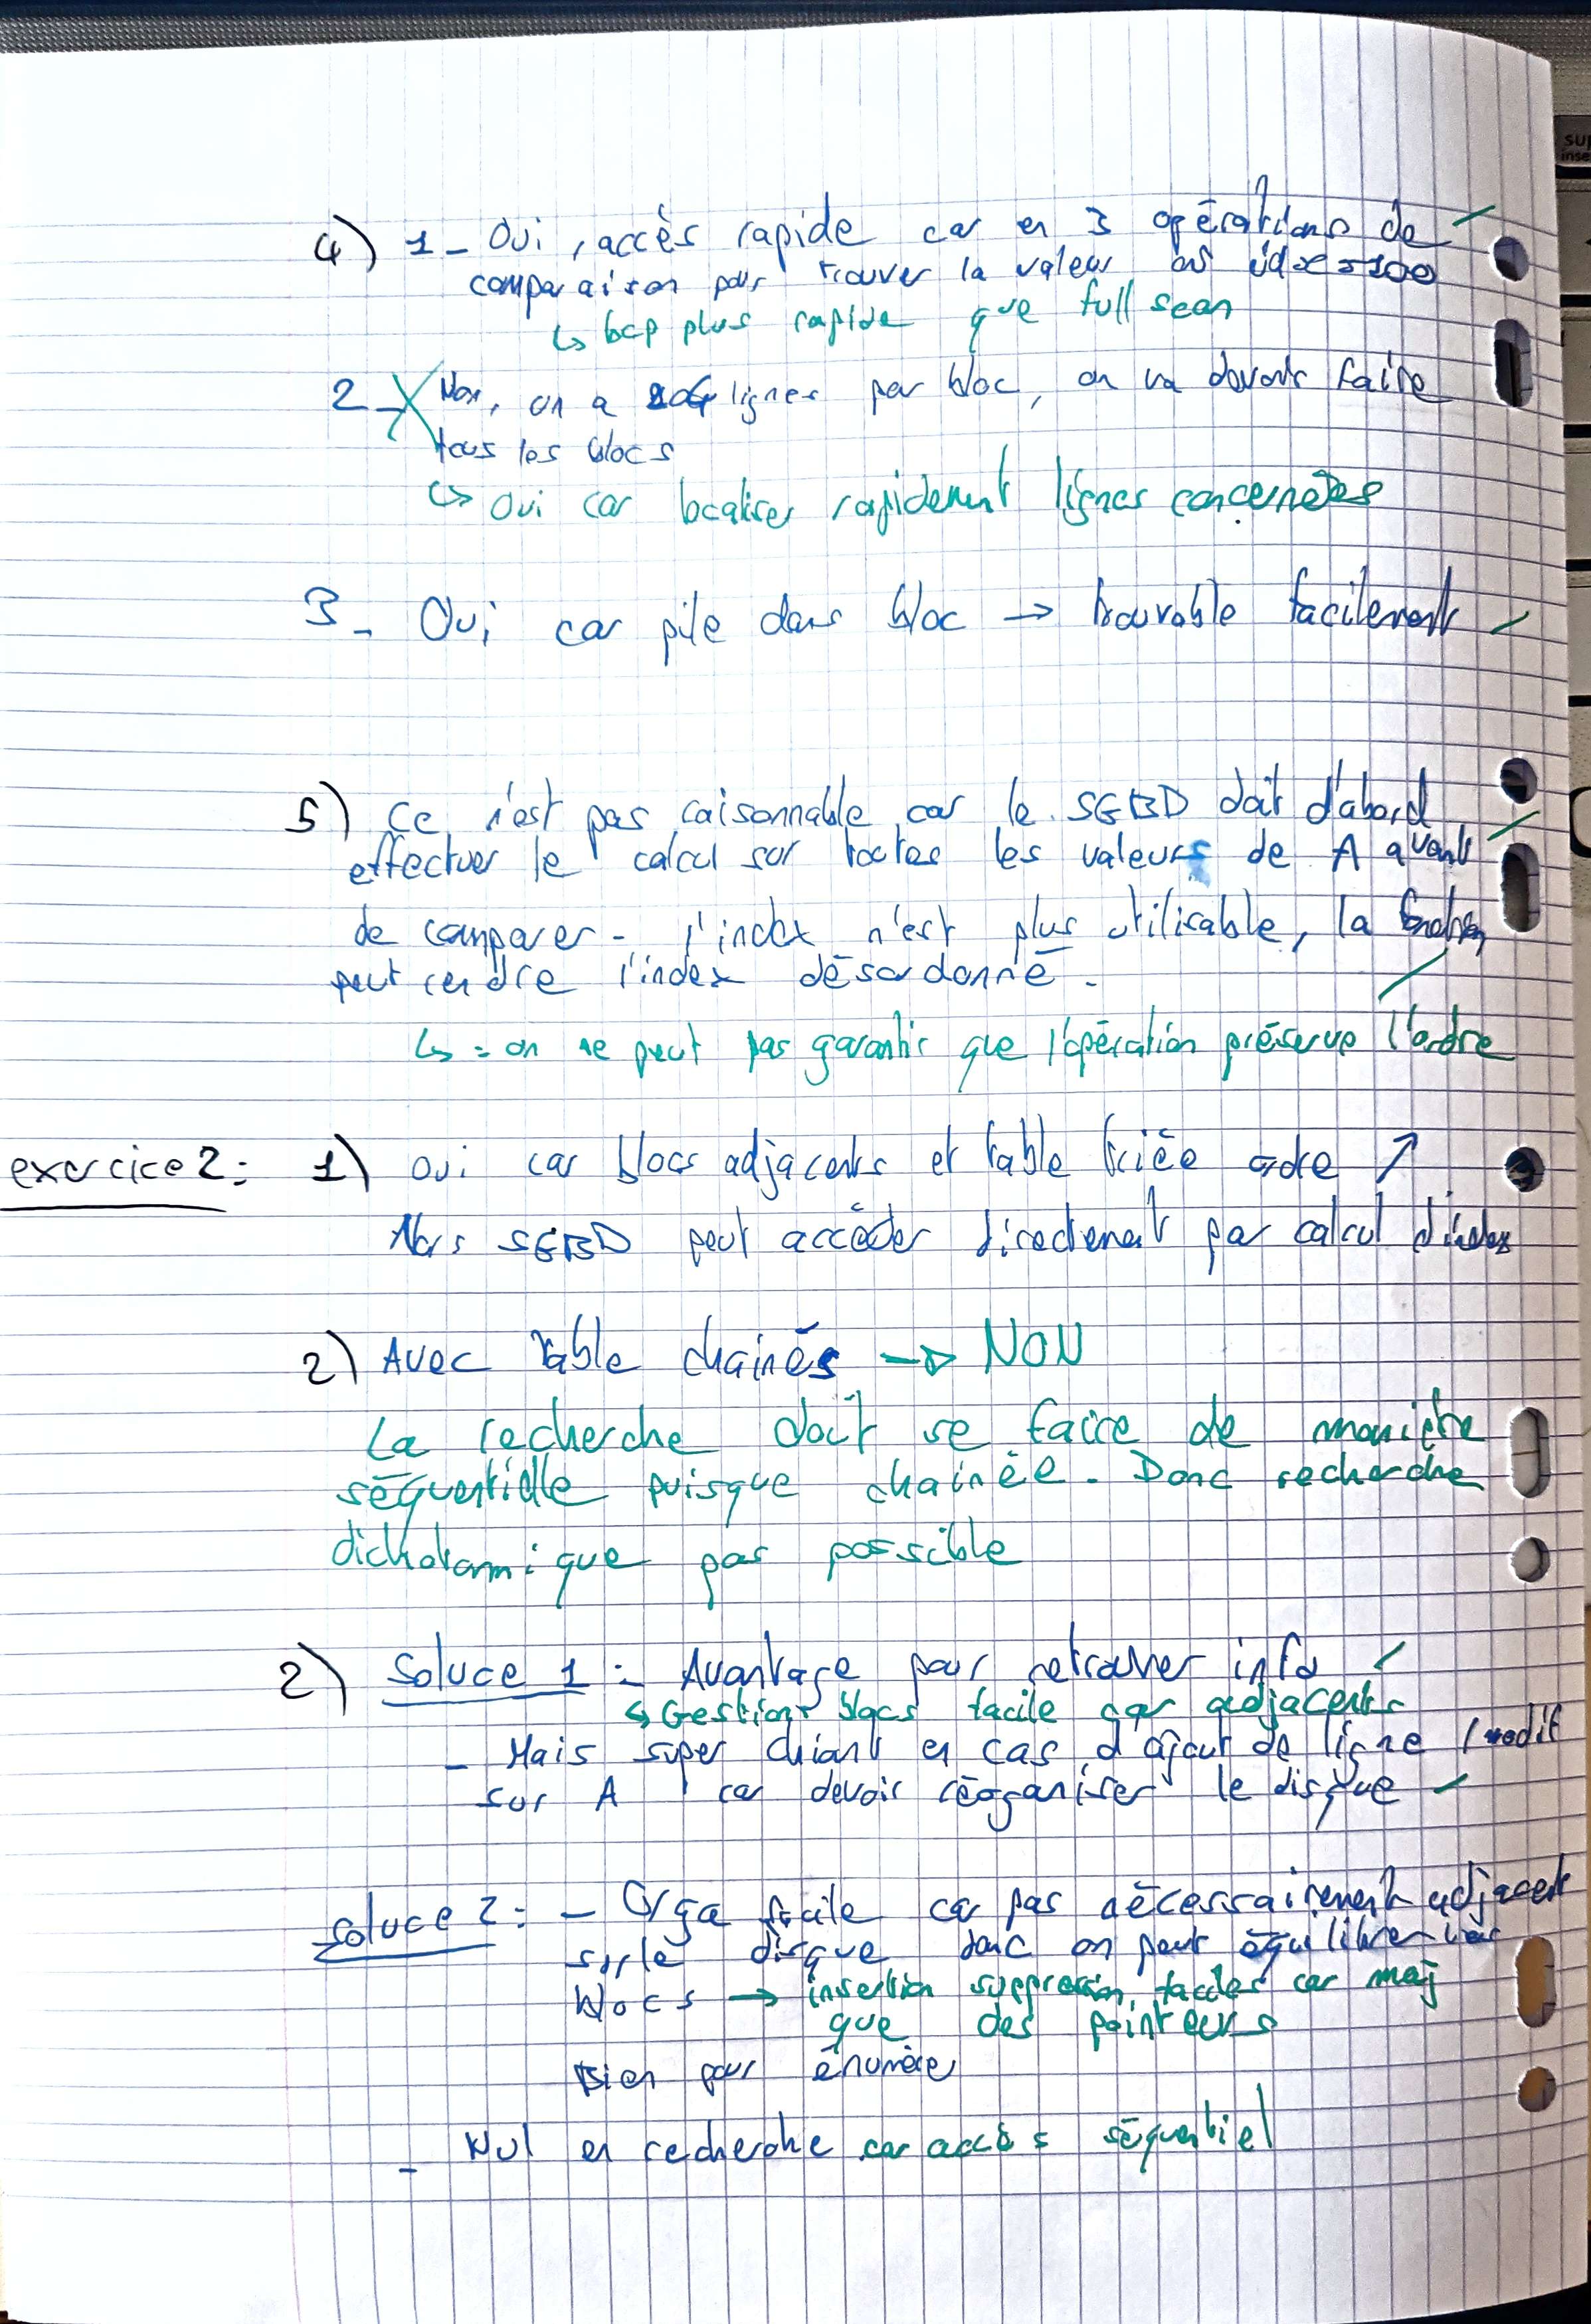 4) 1- Oui, accès rapide car en 3 opérations de
comparaison pour trouver la valeur où idx=100
↳ bcp plus rapide que full scan
2- Non, on a lignes par bloc, on va devoir faire
tous les blocs
↳ Oui car localiser rapidement lignes concernées
3- Oui car pile dans bloc → trouvable facilement
5) Ce n'est pas raisonnable car le SGBD doit d'abord
effectuer le calcul sur toutes les valeurs de A avant
de comparer - l'index n'est plus utilisable, la
peut rendre l'index désordonné.
↳ = on ne peut pas garantir que l'opération préserve l'ordre
exercice 2: 1) oui car blocs adjacents et table triée ordre ↗
Alors SGBD peut accéder directement par calcul d'index
2) Avec table chainés → NON
La recherche doit se faire de manière
séquentielle puisque chainée. Donc recherche
dichotomique pas possible
2) Soluce 1: - Avantage pour retrouver info
↳ Gestion blocs facile car adjacents
- Mais super chiant en cas d'ajout de ligne / modif
sur A car devoir réorganiser le disque
soluce 2: - Orga facile car pas nécessairement adjacent
sur le disque donc on peut équilibrer les
blocs → insertion suppression faciles car maj
que des pointeurs
Bien pour énumérer
- Nul en recherche car accès séquentiel